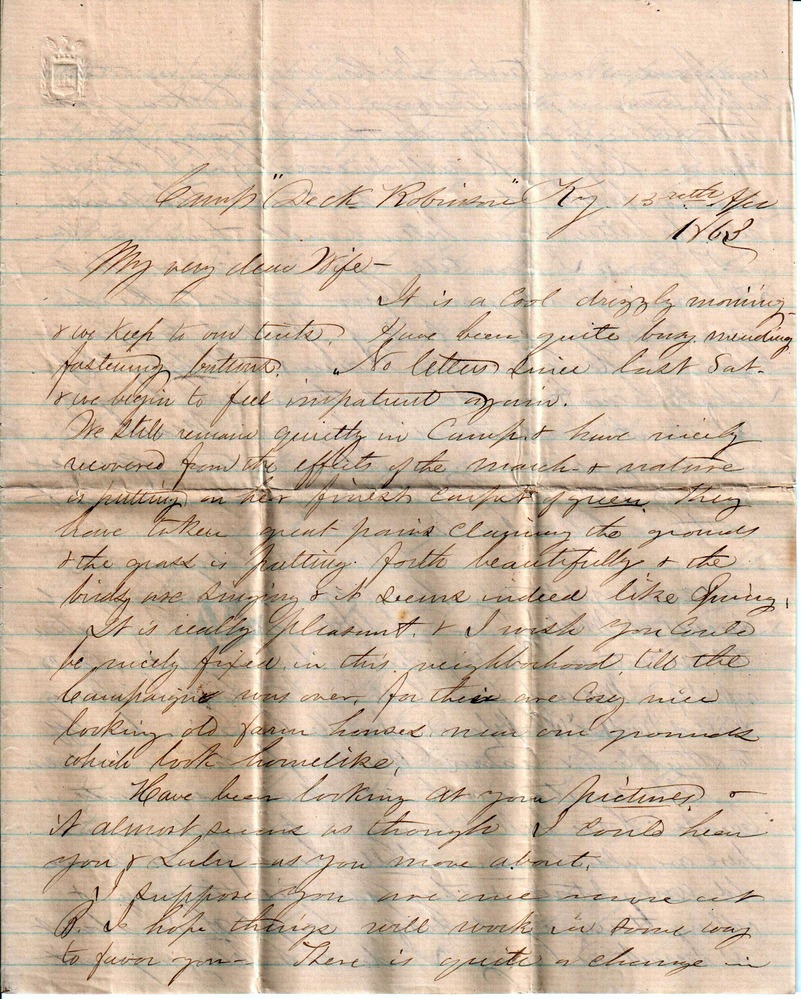 Camp "Deck Robinson" Ky. 13th Apr
1863
My very dear Wife -
It is a cool drizzly morning
& we keep to our tents. Have been quite busy mending
fastening buttons. No letters since last Sat.
& we begin to feel impatient again.
We still remain quietly in Camp & have nicely
recovered from the effects of the march & nature
is putting on her finest carpet of green they
have taken great pains cleaning the grounds
& the grass is putting forth beautifully & the
birds are singing & it seems indeed like Spring.
It is really pleasant. & I wish you could
be nicely fixed in this neighborhood till the
Campaign was over, for their are cosy nice
looking old farm houses near our grounds
which look homelike.
Have been looking at your pictures &
it almost seems as though I could hear
you & Lulu as you move about.
I suppose you are once more at
B. I hope things will work in some way
to favor you - There is quite a change in